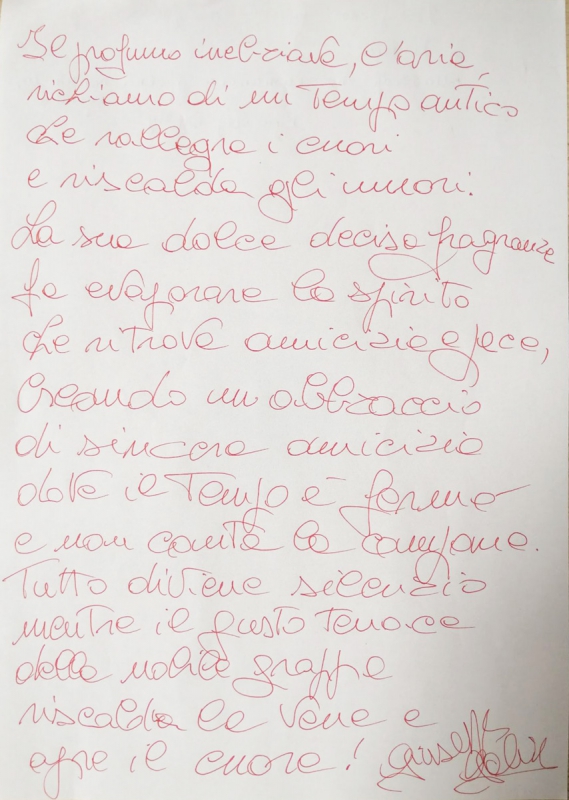 Il profumo inebriava, l'aria,
richiamo di un Tempo antico
che rallegra i cuori
e riscalda gli umori.
La sua dolce decisa fragranza
fa evaporare lo spirito
che ritrova amicizia e pace,
Creando un abbraccio
di sincera amicizia
dove il Tempo è fermo
e non conta la canzone.
Tutto diviene silenzio
mentre il gusto tenace
della nobile grappa
riscalda le vene e
apre il cuore!